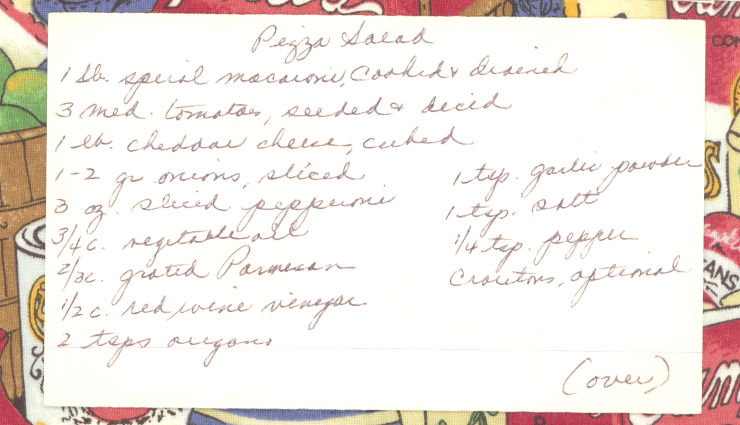 Pizza Salad
1 lb. spiral macaroni, cooked & drained
3 med. tomatoes, seeded & diced
1 lb. cheddar cheese, cubed
1-2 gr onions, sliced
3 oz. sliced pepperoni
3/4 c. vegetable oil
2/3 c. grated Parmesan
1/2 c. red wine vinegar
2 tsps oregano
1 tsp. garlic powder
1 tsp. salt
1/4 tsp. pepper
Croutons, optional
(over)